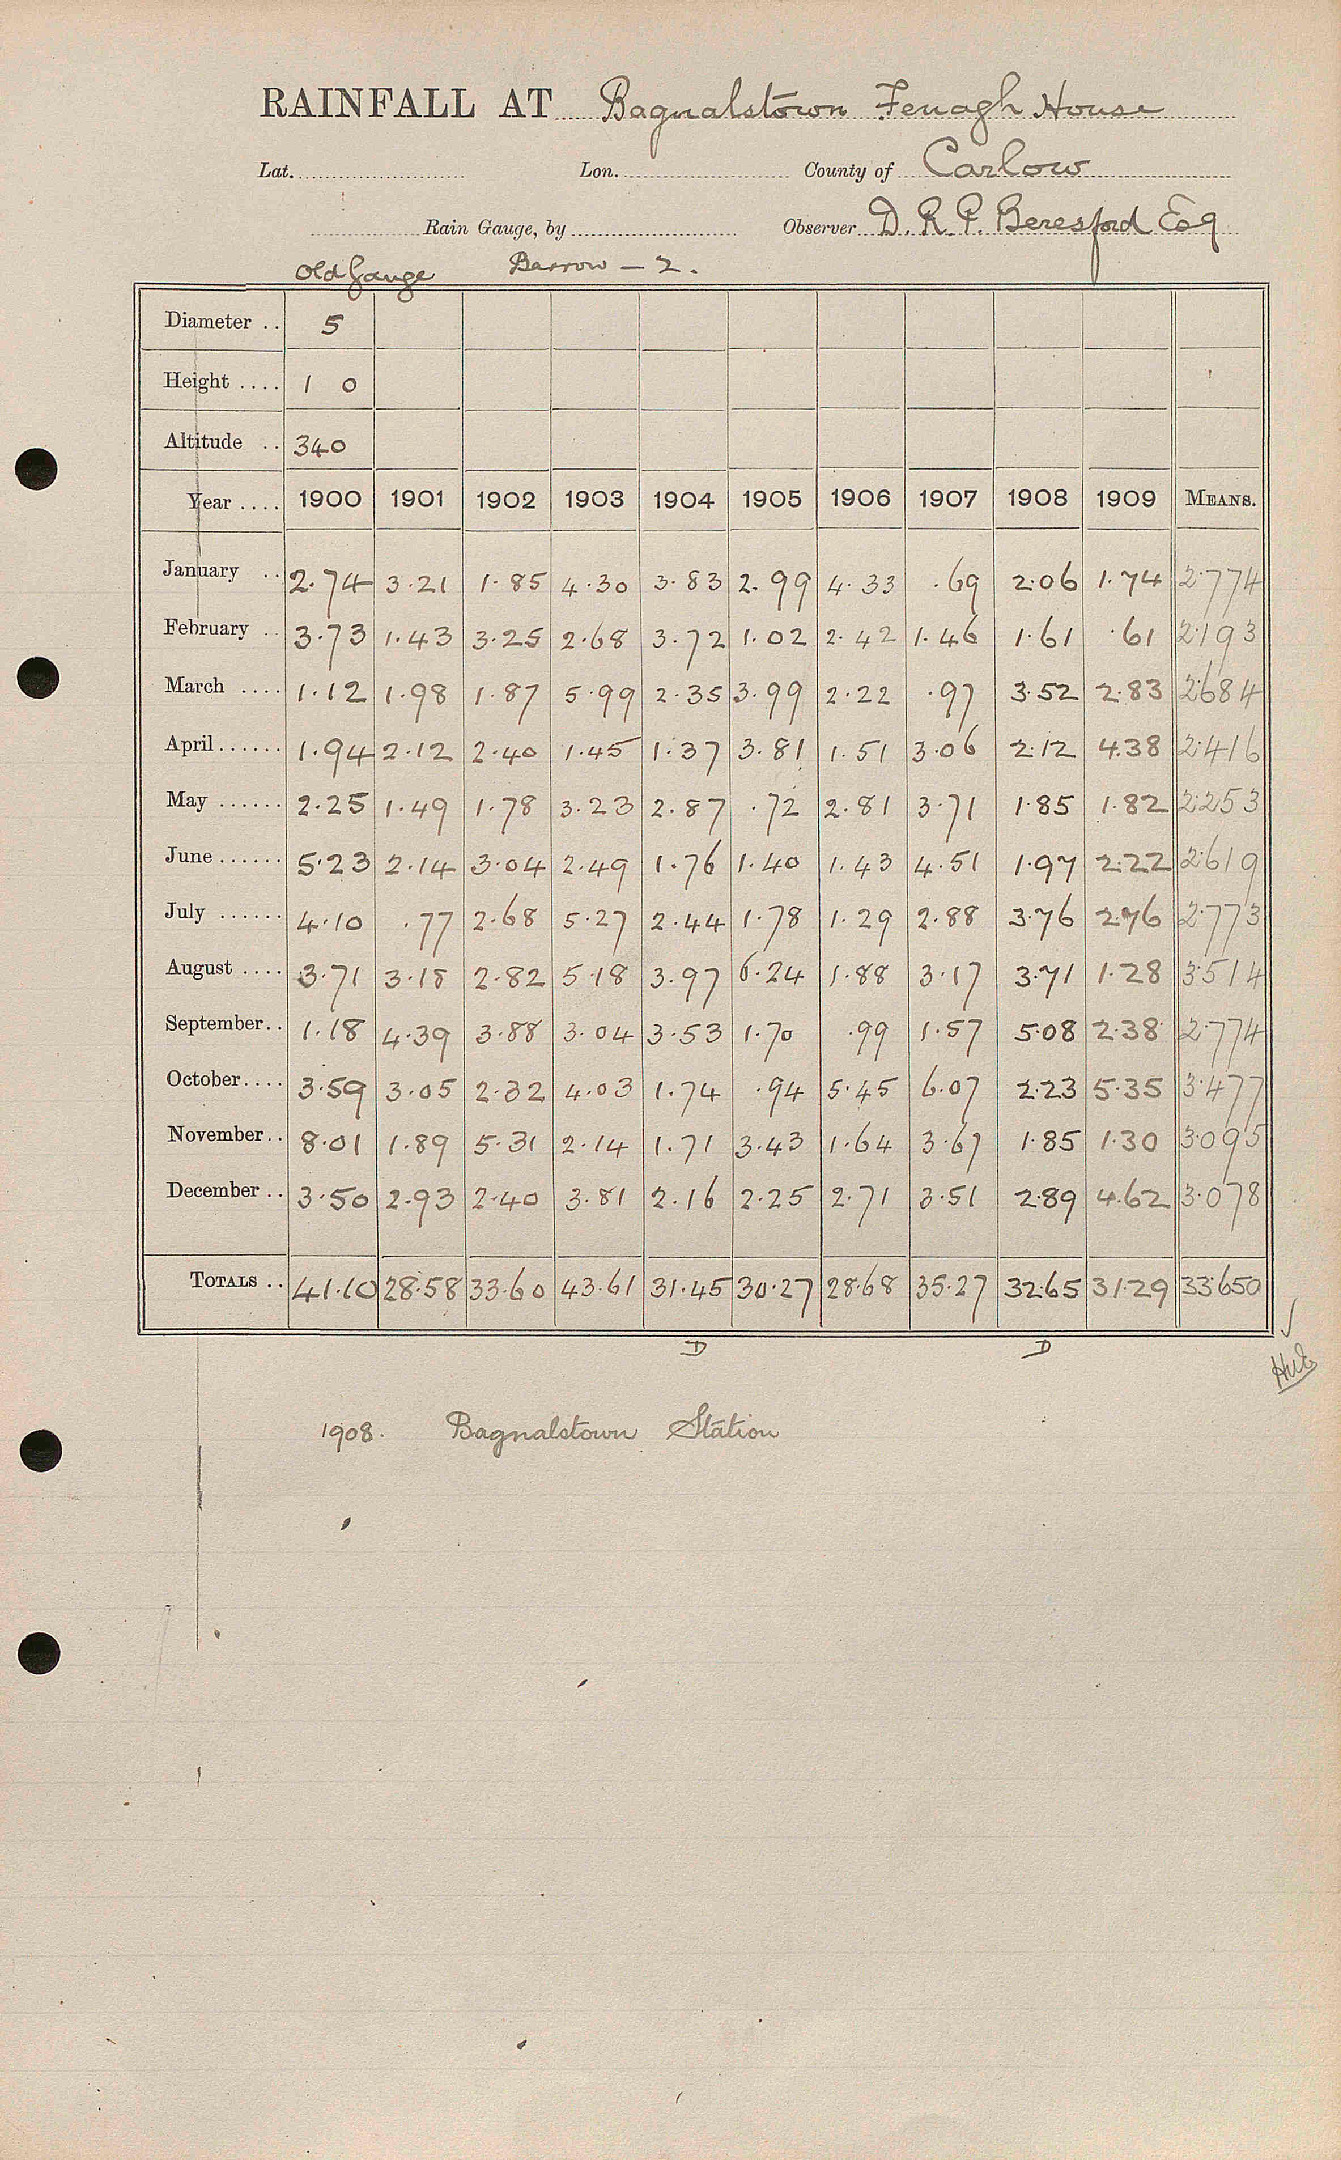 RAINFALL AT Bagnalstown Fenagh House
Lat. Lon. County of Carlow
Rain Gauge, by Observer D. R. P. Beresford Esq
Old Gauge Barrow - 2.
Diameter .. 5
Height .... 1 0
Altitude .. 340
Year .... 1900 1901 1902 1903 1904 1905 1906 1907 1908 1909 MEANS.
January .. 2.74 3.21 1.85 4.30 3.83 2.99 4.33 .69 2.06 1.74 2.774
February .. 3.73 1.43 3.25 2.68 3.72 1.02 2.42 1.46 1.61 .61 2.193
March .... 1.12 1.98 1.87 5.99 2.35 3.99 2.22 .97 3.52 2.83 2.684
April...... 1.94 2.12 2.40 1.45 1.37 3.81 1.51 3.06 2.12 4.38 2.416
May ...... 2.25 1.49 1.78 3.23 2.87 .72 2.81 3.71 1.85 1.82 2.253
June ...... 5.23 2.14 3.04 2.49 1.76 1.40 1.43 4.51 1.97 2.22 2.619
July ...... 4.10 .77 2.68 5.27 2.44 1.78 1.29 2.88 3.76 2.76 2.773
August .... 3.71 3.18 2.82 5.18 3.97 6.24 1.88 3.17 3.71 1.28 3.514
September.. 1.18 4.39 3.88 3.04 3.53 1.70 .99 1.57 5.08 2.38 2.774
October.... 3.59 3.05 2.32 4.03 1.74 .94 5.45 6.07 2.23 5.35 3.477
November.. 8.01 1.89 5.31 2.14 1.71 3.43 1.64 3.67 1.85 1.30 3.095
December .. 3.50 2.93 2.40 3.81 2.16 2.25 2.71 3.51 2.89 4.62 3.078
TOTALS .. 41.10 28.58 33.60 43.61 31.45 30.27 28.68 35.27 32.65 31.29 33.650
D D
1908. Bagnalstown Station